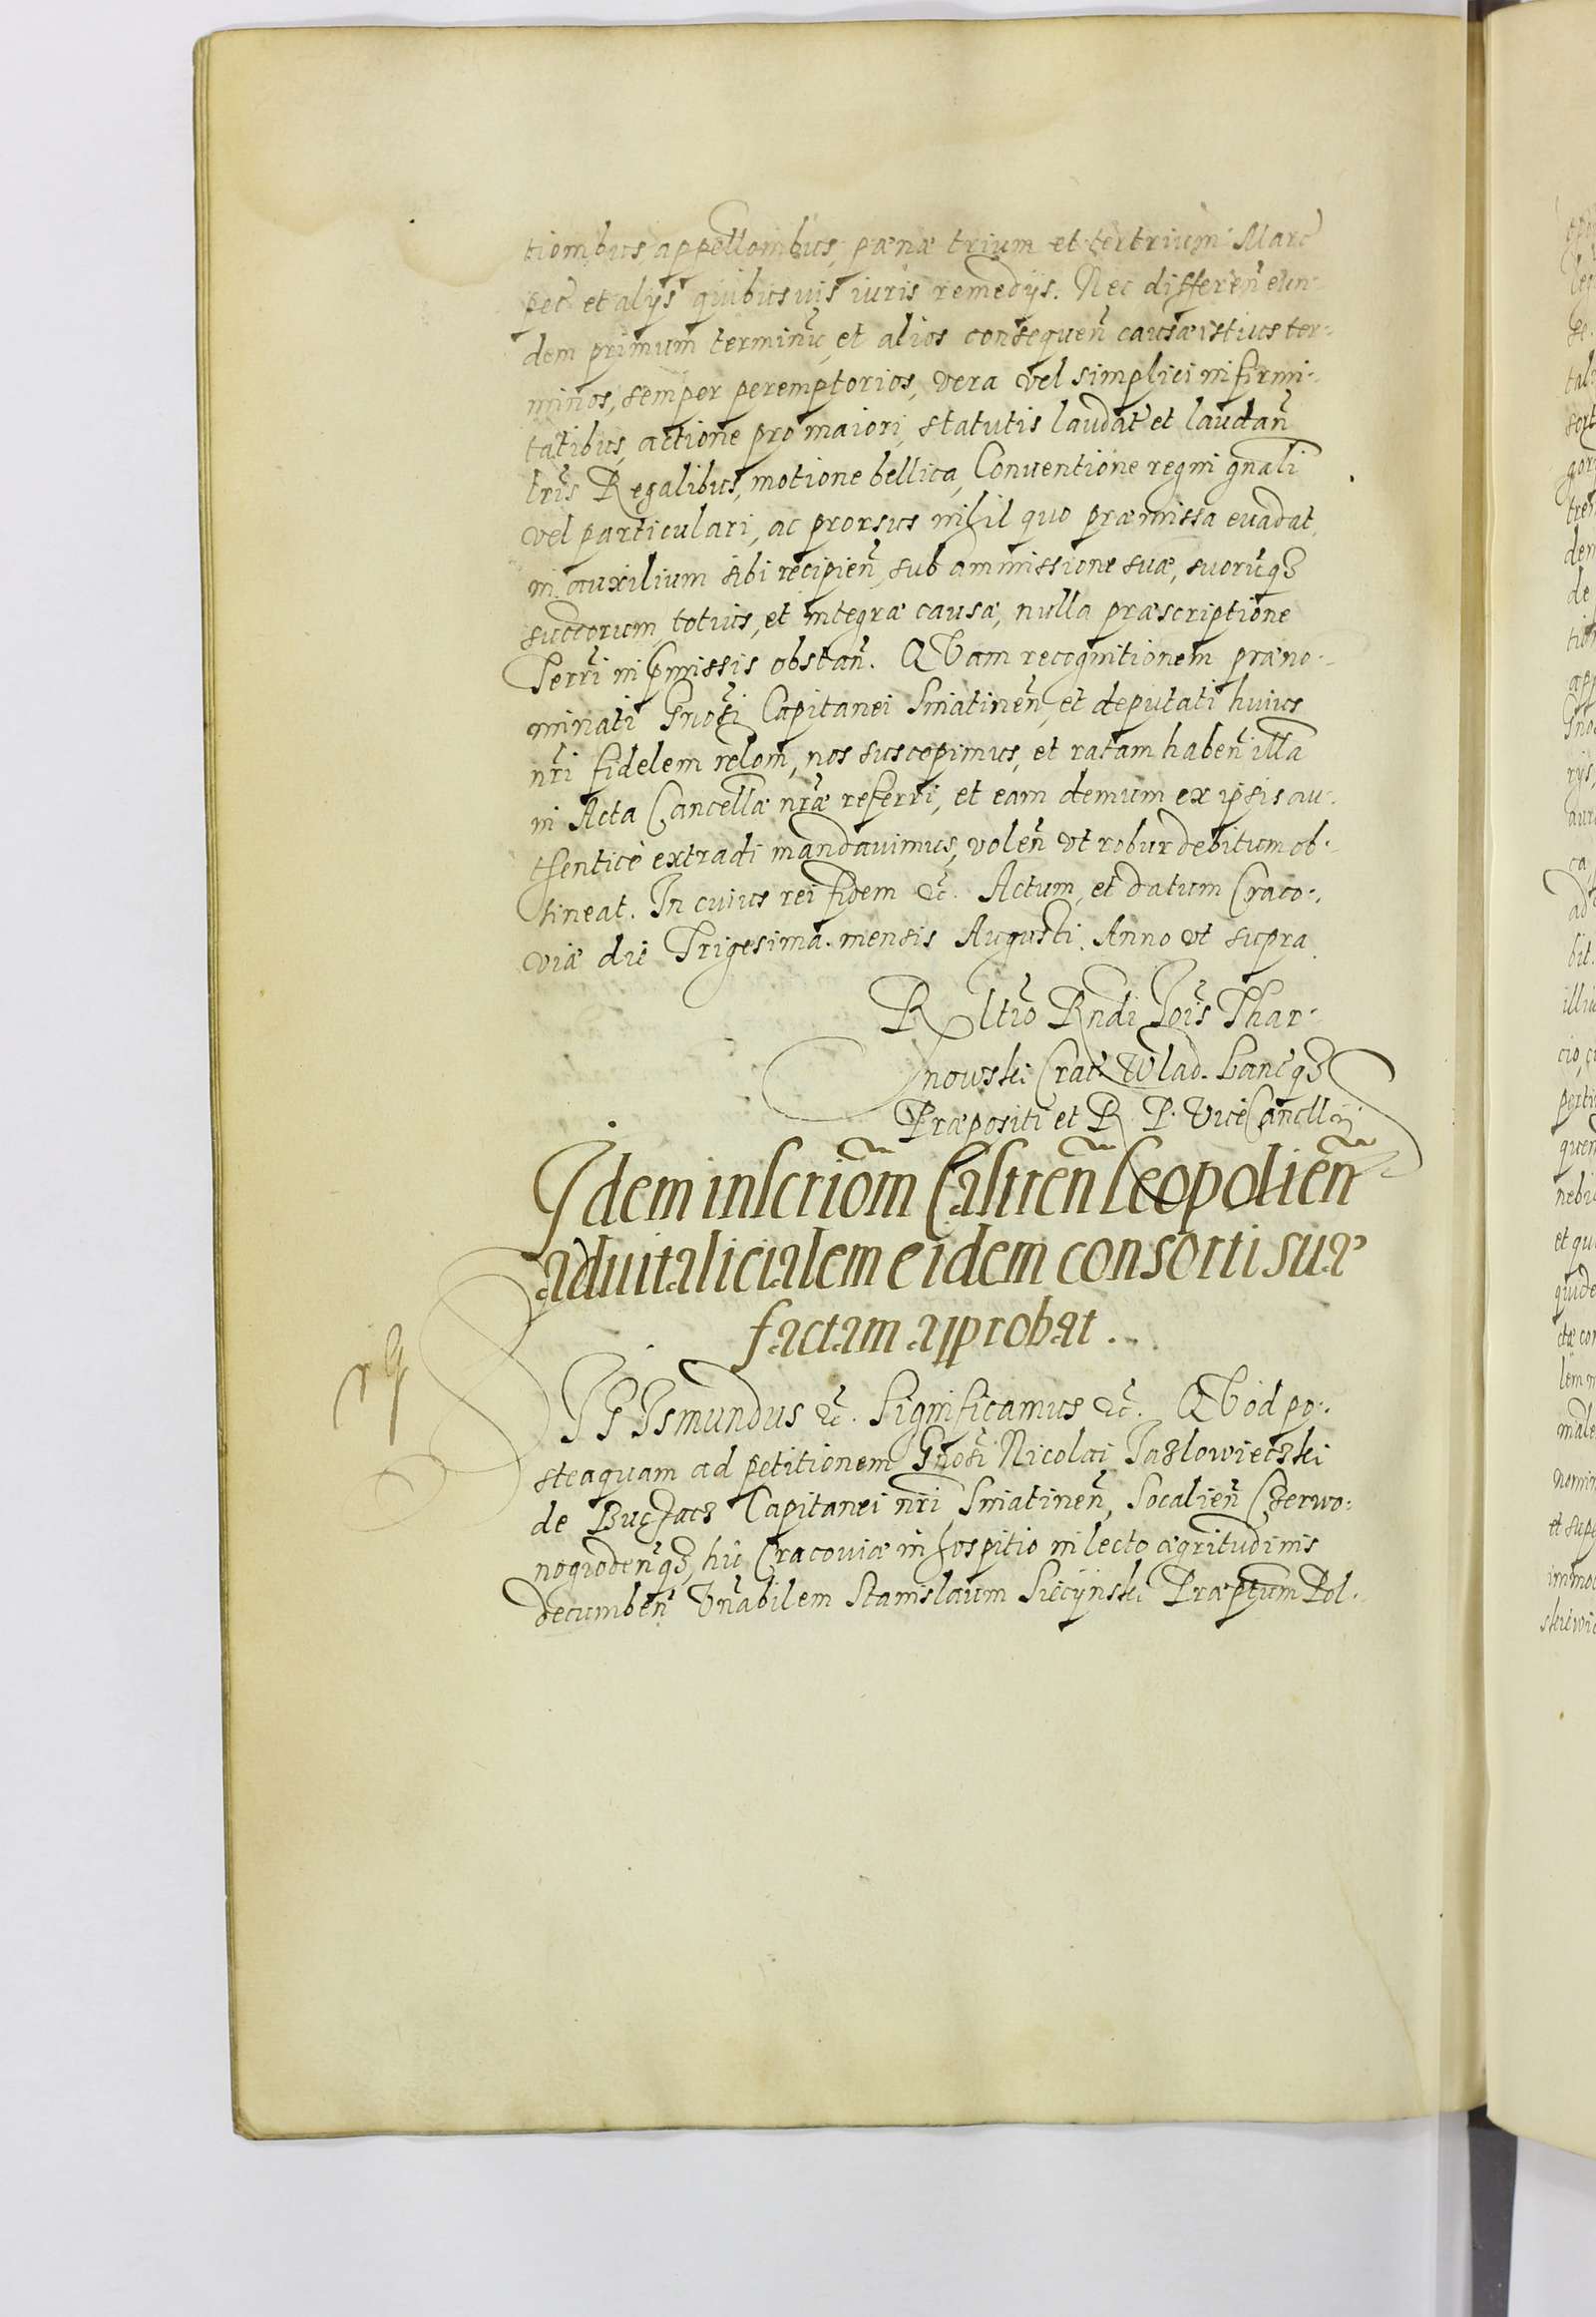 tionibus, appellonibus, pænæ trium et ter trium Marc̃
pec̃ et alijs quibusuis iuris remedijs. Nec differeñ eun-
dem primum terminũ, et alios consequeñ causæ istius ter-
minos, semper peremptorios, vera vel simplici infirmi-
tatibus, actione pro maiori, statutis laudat̃ et laudañ
lrĩs Regalibus, motione bellica, Conuentione regni gñali
vel particulari, ac prorsus nihil quo præmissa euadat,
in auxilium sibi recipieñ, sub ammissione suæ, suorũqȝ
succorum, totius, et integræ causæ, nulla præscriptione
Terrĩ in p̃missis obstañ. QVam recognitionem præno-
minati Gnosĩ Capitanei Sniatineñ, et deputati huius
nrĩ fidelem relom̃, nos suscepimus, et ratam habeñ illã
in Acta Cancellæ nrãe referri, et eam demum ex ipsis au-
thenticè extradi mandauimus, voleñ vt robur debitum ob-
tineat. In cuius rei fidem &c̃. Actum, et datum Craco-
viæ die Trigesima mensis Augusti. Anno vt supra.
Rltĩo Rndi Joĩs Thar-
nowski Crac̃ Wlad. Lanc̃qȝ
Præpositi et R. P. ViceCancllij
Idem inscriom̃ Castreñ Leopolieñ
aduitalicialem eidem consorti suæ
factam approbat.
SIGIsmundus &c̃. Significamus &c̃. QVod po-
steaquam ad petitionem Gnosĩ Nicolai Jazlowieczki
de Buczacz Capitanei nrĩ Sniatineñ, Socalieñ Czerwo-
nogrodeñqȝ, hic Cracouiæ in hospitio in lecto ægritudinis
decumbeñ Vnãbilem Stanislaum Siecijnski Præptum Pol-